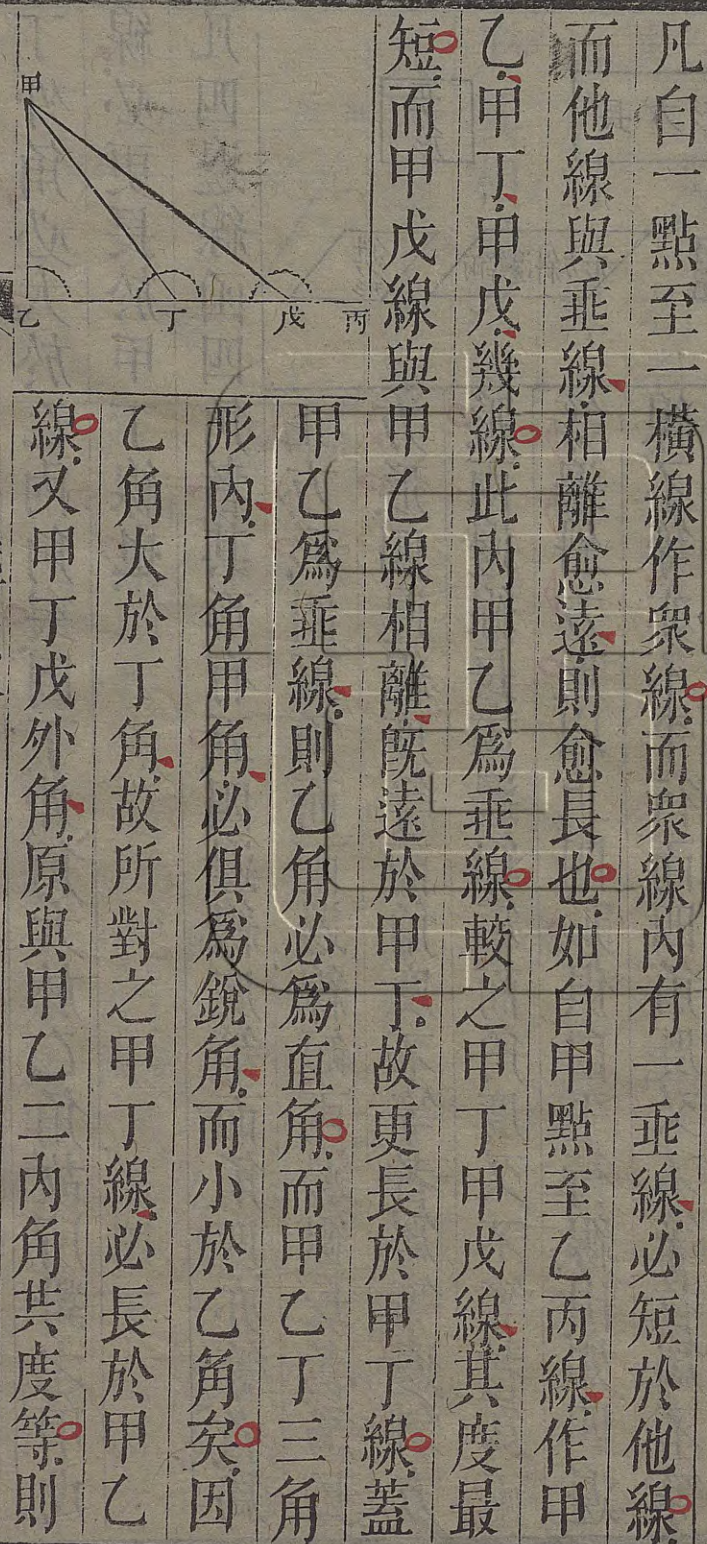 凡自一點至一橫線作衆線而衆線內有一垂線必短於他線
而他線與垂線相離愈遠則愈長也如自甲點至乙丙線作甲
乙甲丁甲戊幾線此內甲乙爲垂線較之甲丁甲戊線其度最
短而甲戊線與甲乙線相離旣遠於甲丁故更長於甲丁線蓋
甲乙爲垂線則乙角必爲直角而甲乙丁三角
形內丁角甲角必俱爲銳角而小於乙角矣因
乙角大於丁角故所對之甲丁線必長於甲乙
線又甲丁戊外角原與甲乙二內角共度等則
甲
乙
丁
戊
丙